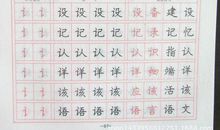 讠 讠 设 设 设 设 设 备 建 设
讠 讠 记 记 记 记 记 录 记 忆
讠 讠 认 认 认 认 认 识 指 认
讠 讠 详 详 详 详 详 细 端 详
讠 讠 该 该 该 该 应 该 活 该
讠 讠 语 语 语 语 语 言 语 文